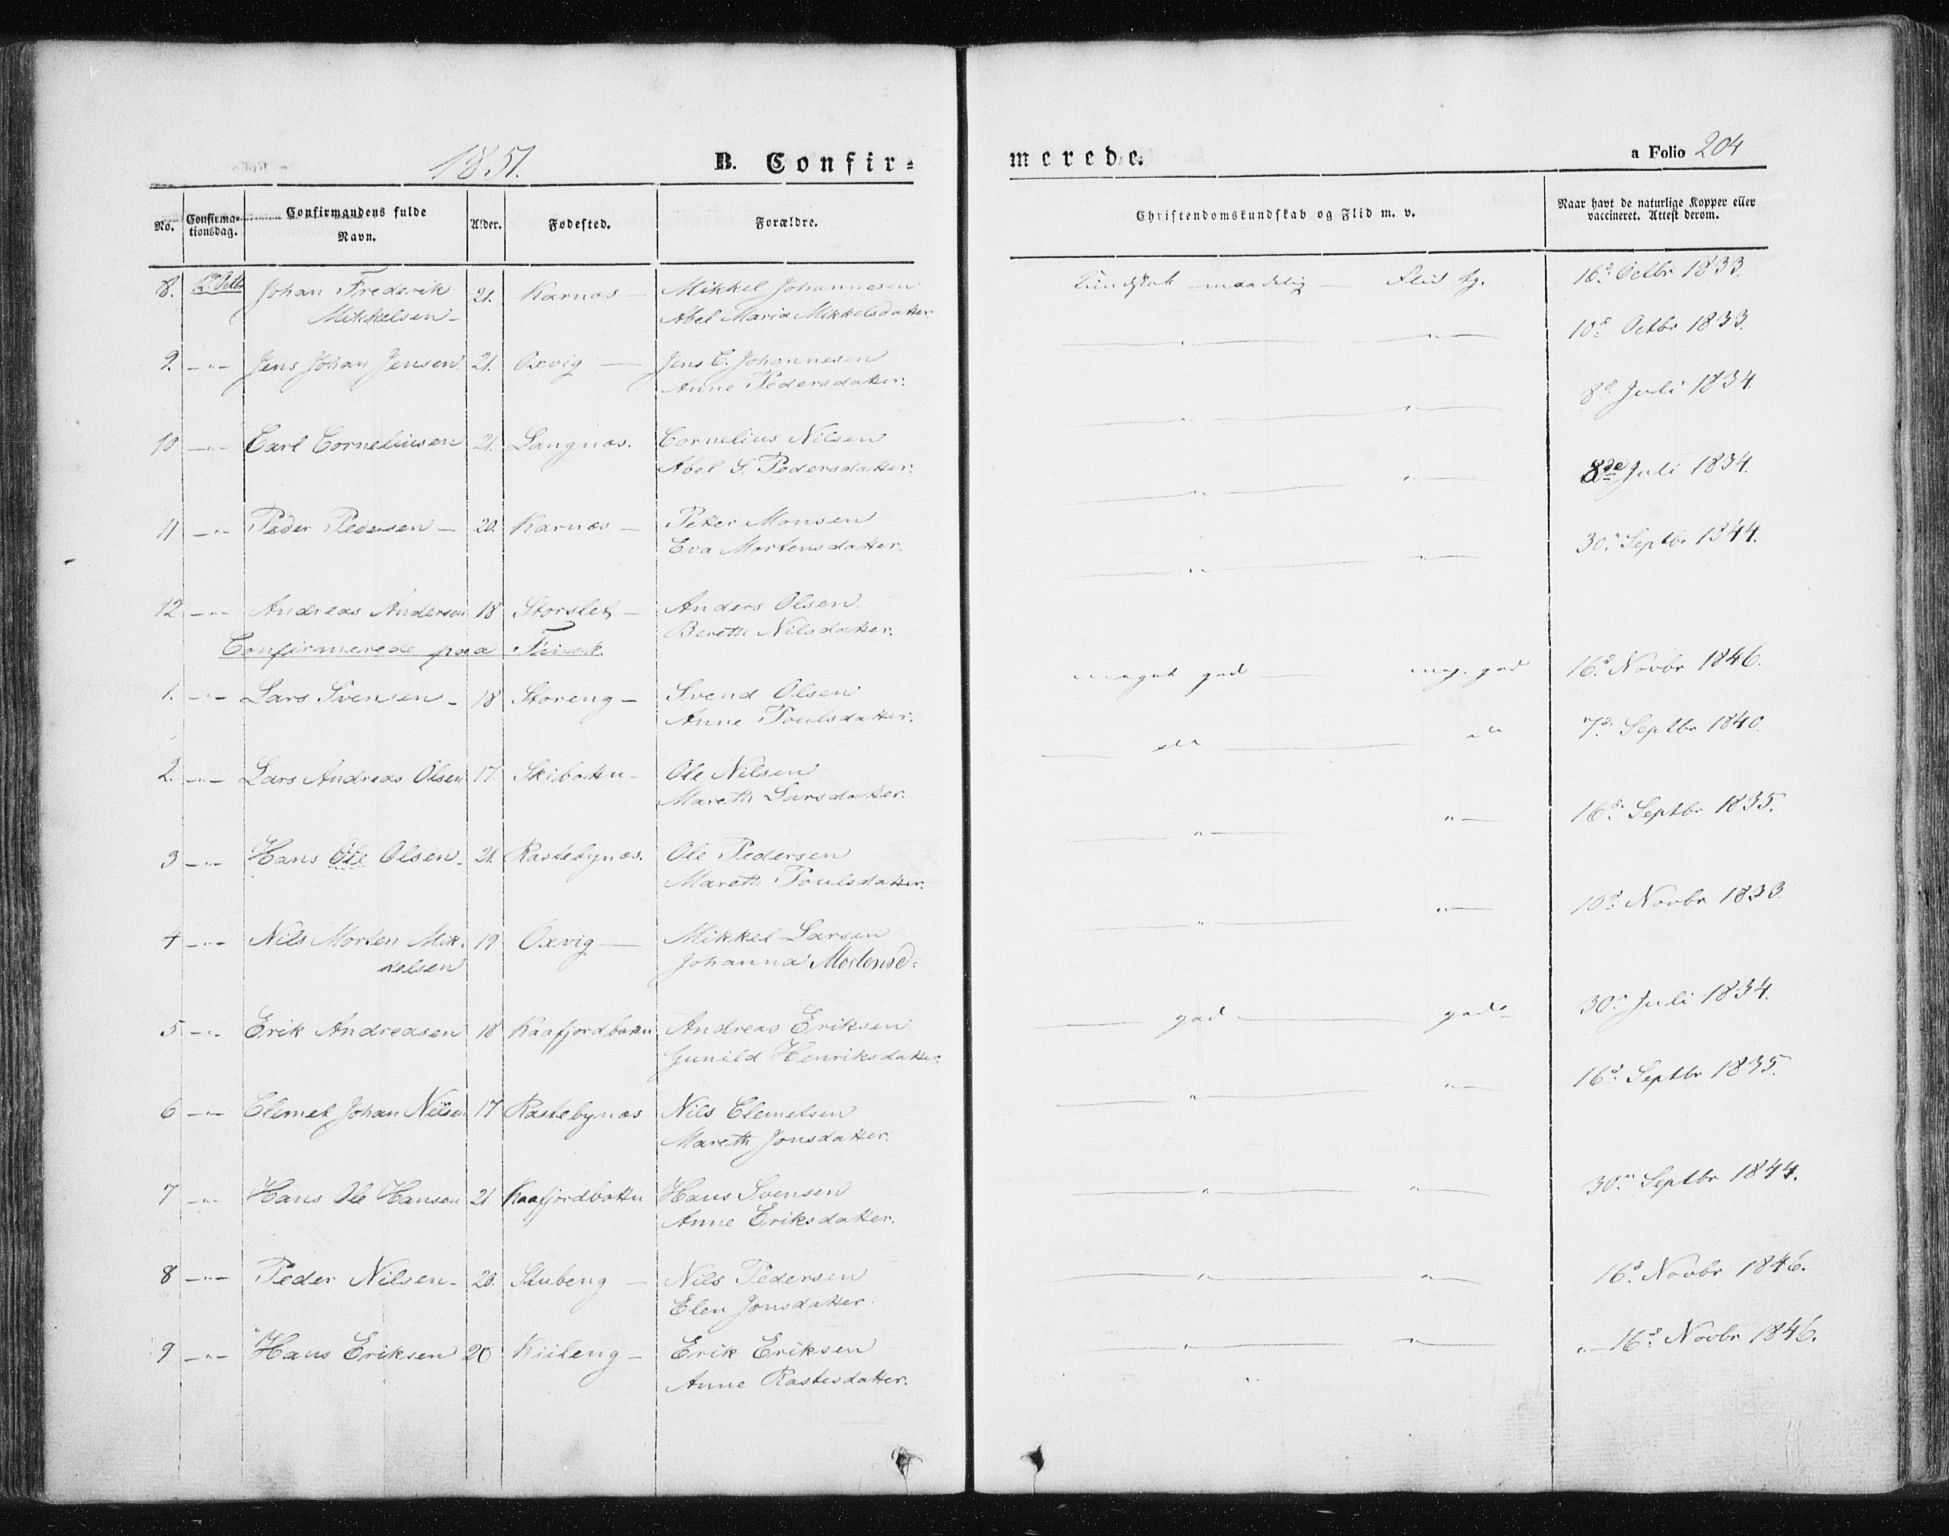 1851.
B. Confir-
merede.
a Folio 204
No.
Confirma-
tionsdag.
Confirmandens fulde
Navn.
Alder.
Fødested.
Forældre.
Christendomskundskab og Flid m. v.
Naar havt de naturlige Kopper eller
vaccineret. Attest derom.
8. Johan Frederik 21. Karnæs — Mikkel Johannesen Kundskab maadelig — Flid 16d Octbr 1833.
Mikkelsen — Abel Maria Mikkelsdatter
9. —"— Jens Johan Jensen 21. Oxvig — Jens C. Johannesen —"— —"— 10d Octbr 1833.
Anne Pedersdatter.
10 —"— Carl Corneliusen 21. Langnæs. Cornelius Nilsen —"— —"— 8d Juli 1834.
Abel S. Pedersdatter.
11 —"— Peder Pedersen — 20. Karnæs — Petter Monsen —"— —"— 8de Juli 1834.
Eva Mortensdatter.
12 —"— Andreas Andersen 18 Storslet — Anders Olsen —"— —"— 30. Septbr 1844.
Bereth Nilsdatter.
Confirmerede paa
1. —"— Lars Svensen — 18 Storeng — Svend Olsen meget god — meg. god 16d Novbr 1846.
Anne Poulsdatter.
2. —"— Lars Andreas Olsen 17. Skibottn — Ole Nilsen 7d Septbr 1840.
Mareth Larsdatter.
3 —"— Hans Ole Olsen — 21. Rastebynæs. Ole Pedersen —"— "— 16d Septbr 1835.
Mareth Poulsdatter.
4 —"— Nils Morten Mik- 19 Oxvig — Mikkel Larsen —"— "— 10d Novbr 1833.
kelsen Johanna Mortensd:
5 —"— Erik Andreasen 18 Kaafjordbottn Andreas Eriksen — god — god — 30. Juli 1834.
Gunild Henriksdatter.
6 —"— Clemet Johan Nilsen 17 Rastebynæs Nils Clemetsen —"— "— 16d Septbr 1835.
Mareth Jonsdatter.
7 —"— Hans Ole Hansen 21. Kaafjordbottn Hans Svensen —"— —"— 30. Septbr 1844.
Anne Eriksdatter.
8 —"— Peder Nilsen — 20. Stubeng — Nils Pedersen —"— —"— 16d Novbr 1846.
Elen Jonsdatter.
9 —"— Hans Eriksen 20 Kiileng — Erik Eriksen —"— —"— "— 16d Novbr 1846.
Anne Rastesdatter.